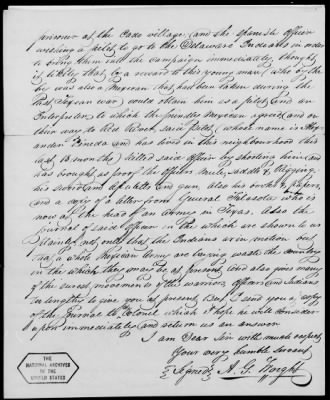 prisoner at the Cado village, (and the Spanish officer
wishing a pilot to go to the Delaware Indians in order
to bring them into the campaign immediately thought
it likely that by a reward to this young man (who by the
by was also a Mexican that had been taken during the
last Texean war) could obtain him as a pilot and an
Interpreter, to which the friendly Mexican agreed, and on
their way to Red River said pilot, (whose name is
Pineda and has lived in this neighbourhood this
last 18 months) killed said officer by shooting him and
has brought as proof the officers mule, saddle,
his sword and epaulets and gun, also his papers,
and a copy of a letter from General Filasola who is
now at the head of an army in Texas. Also the
journal of said officer in the which are shown to us
plainly not only that the Indians are in motion but
that a whole Mexican army are laying waste the country
in the which they may be at present, and also gives many
of the surest movements of the warriors, officers and Indians
too lengthy to give you at present. But I send you a copy
of the journal to Colonel which I hope he will consider
upon immediately and return us an answer
I am Dear Sir with much respect
Your very humble servant
(Signed) A. G. Wright
THE
NATIONAL ARCHIVES
OF THE
UNITED STATES